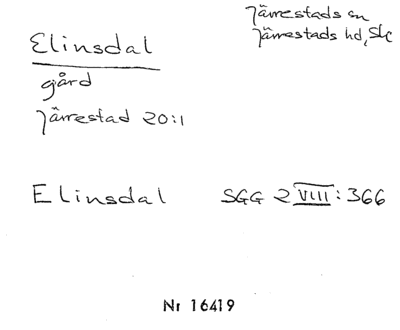 Järrestads sn
Järrestads hd, Skå
Elinsdal
gård
Järrestad 20:1
Elinsdal SGG 2 VIII: 366
Nr 16419